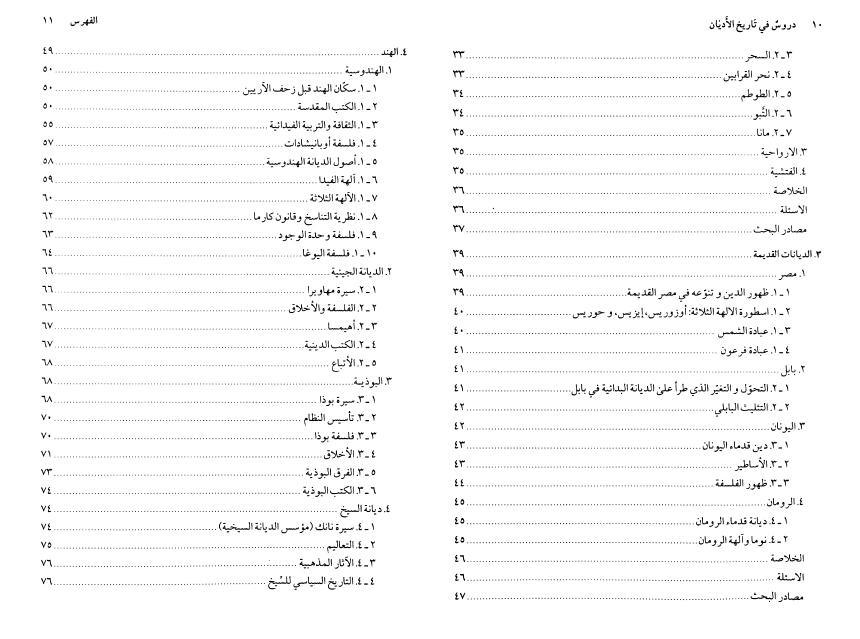 ١٠ دروسٌ في تاريخ الأديان
٣ ـ ٢. السحر ٣٣
٤ ـ ٢. نحر القرابين ٣٣
٥ ـ ٢. الطوطم ٣٤
٦ ـ ٢. التَّبو ٣٤
٧ ـ ٢. مانا ٣٥
٣. الارواحية ٣٥
٤. الفتشية ٣٥
الخلاصة ٣٦
الاسئلة ٣٦
مصادر البحث ٣٧
٣. الديانات القديمة ٣٩
١. مصر ٣٩
١ ـ ١. ظهور الدين و تنوّعه في مصر القديمة ٣٩
٢ ـ ١. اسطورة الالهة الثلاثة: أوزوريس، إيزيس، و حوريس ٤٠
٣ ـ ١. عبادة الشمس ٤٠
٤ ـ ١. عبادة فرعون ٤١
٢. بابل ٤١
١ ـ ٢. التحوّل و التغيّر الذي طرأ على الديانة البدائية في بابل ٤١
٢ ـ ٢. التثليث البابلي ٤٢
٣. اليونان ٤٢
١ ـ ٣. دين قدماء اليونان ٤٣
٢ ـ ٣. الأساطير ٤٣
٣ ـ ٣. ظهور الفلسفة ٤٤
٤. الرومان ٤٥
١ ـ ٤. ديانة قدماء الرومان ٤٥
٢ ـ ٤. نوما وآلهة الرومان ٤٥
الخلاصة ٤٦
الاسئلة ٤٦
مصادر البحث ٤٧
الفهرس ١١
٤. الهند ٤٩
١. الهندوسية ٥٠
١ ـ ١. سكّان الهند قبل زحف الآريين ٥٠
٢ ـ ١. الكتب المقدسة ٥٠
٣ ـ ١. الثقافة والتربية الفيدائية ٥٥
٤ ـ ١. فلسفة أوبانيشادات ٥٧
٥ ـ ١. أصول الديانة الهندوسية ٥٨
٦ ـ ١. آلهة الفيدا ٥٩
٧ ـ ١. الآلهة الثلاثة ٦٠
٨ ـ ١. نظرية التناسخ وقانون كارما ٦٢
٩ ـ ١. فلسفة وحدة الوجود ٦٣
١٠ ـ ١. فلسفة اليوغا ٦٤
٢. الديانة الجينية ٦٦
١ ـ ٢. سيرة مهاويرا ٦٦
٢ ـ ٢. الفلسفة والأخلاق ٦٦
٣ ـ ٢. أهيمسا ٦٧
٤ ـ ٢. الكتب الدينية ٦٧
٥ ـ ٢. الأتباع ٦٨
٣. البوذية ٦٨
١ ـ ٣. سيرة بوذا ٦٨
٢ ـ ٣. تأسيس النظام ٧٠
٣ ـ ٣. فلسفة بوذا ٧٠
٤ ـ ٣. الأخلاق ٧١
٥ ـ ٣. الفرق البوذية ٧٣
٦ ـ ٣. الكتب البوذية ٧٤
٤. ديانة السيخ ٧٤
١ ـ ٤. سيرة نانك (مؤسس الديانة السيخية) ٧٤
٢ ـ ٤. التعاليم ٧٥
٣ ـ ٤. الآثار المذهبية ٧٦
٤ ـ ٤. التاريخ السياسي للسِّيخ ٧٦